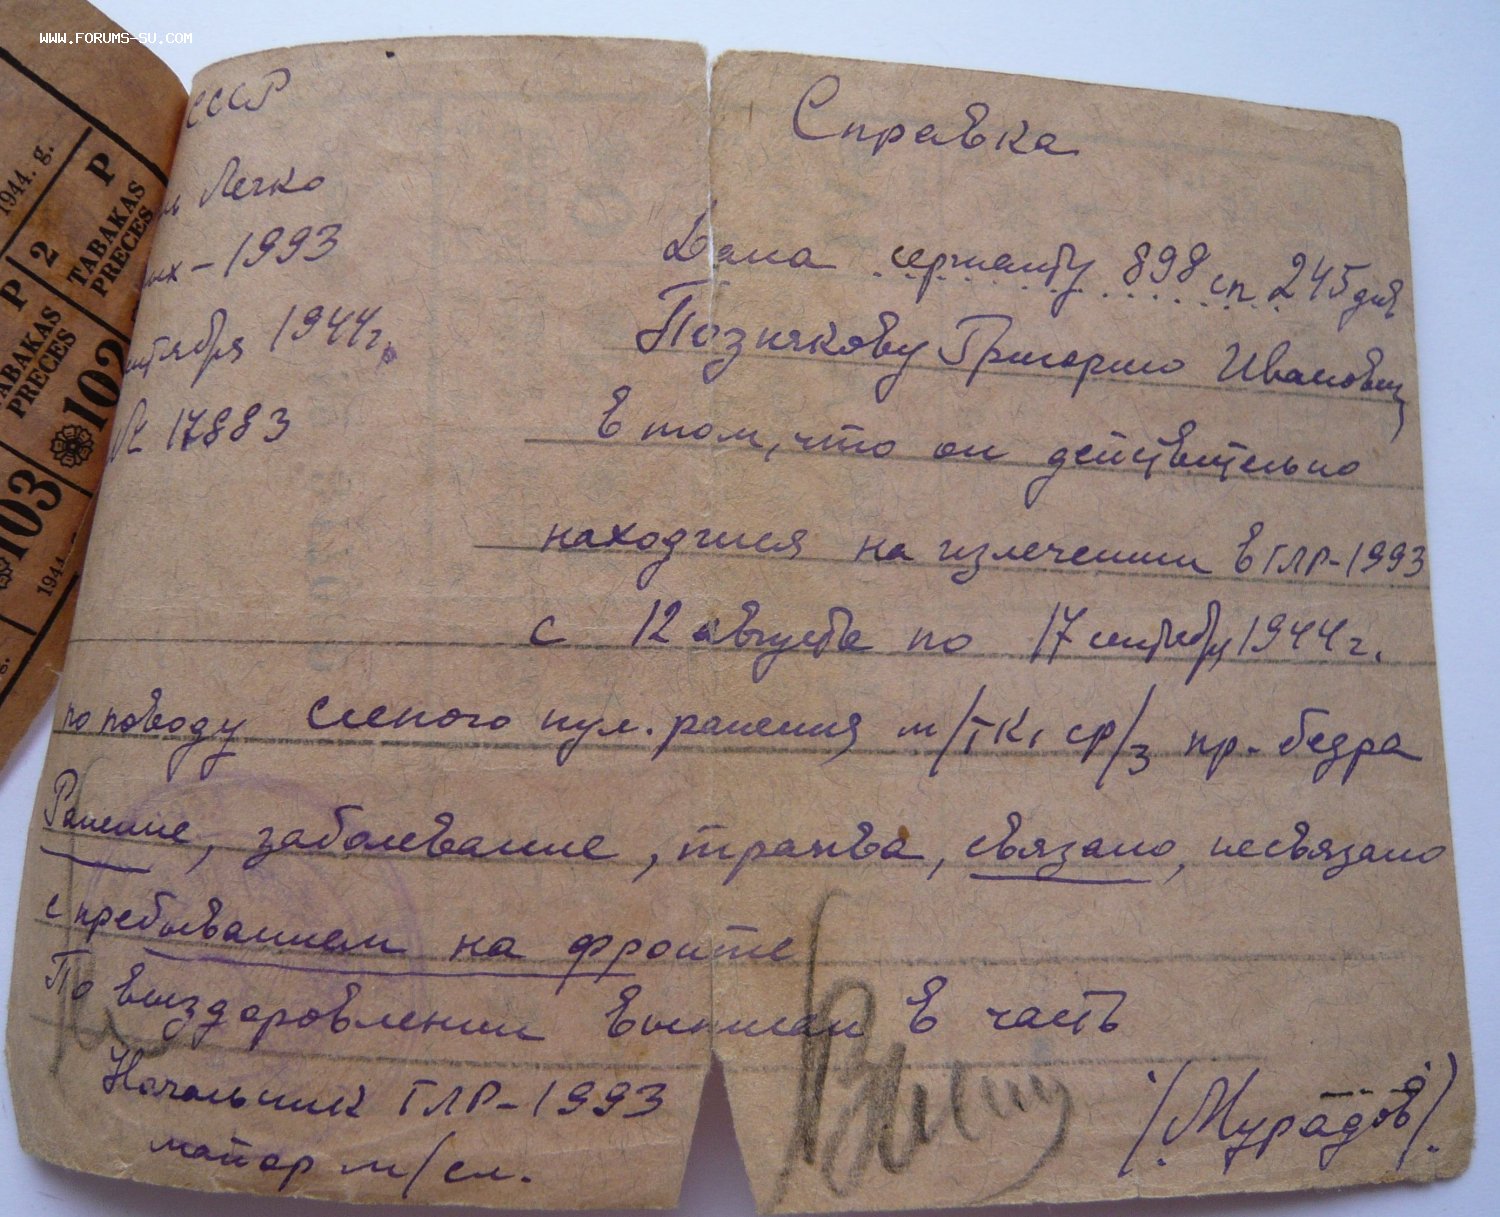 WWW.FORUMS-SU.COM
СССР
Легко
-1993
нтября 1944г.
№ 17883
Справка
Дана сержанту 898 сп 245 див
Познякову Григорию Иванович
в том, что он действительно
находился на излечении в ГЛР-1993
с 12 августа по 17 сентября 1944г.
по поводу слепого пул. ранения м/тк, ср/з пр. бедра
Ранение, заболевание, травма, связано, несвязано
с пребыванием на фронте
По выздоровлении выписан в часть
Начальник ГЛР-1993
майор м/сл.
/Мурадов/.
1944. g.
P
2
TABAKAS
PRECES
P
TABAKAS
PRECES
102
103
1944